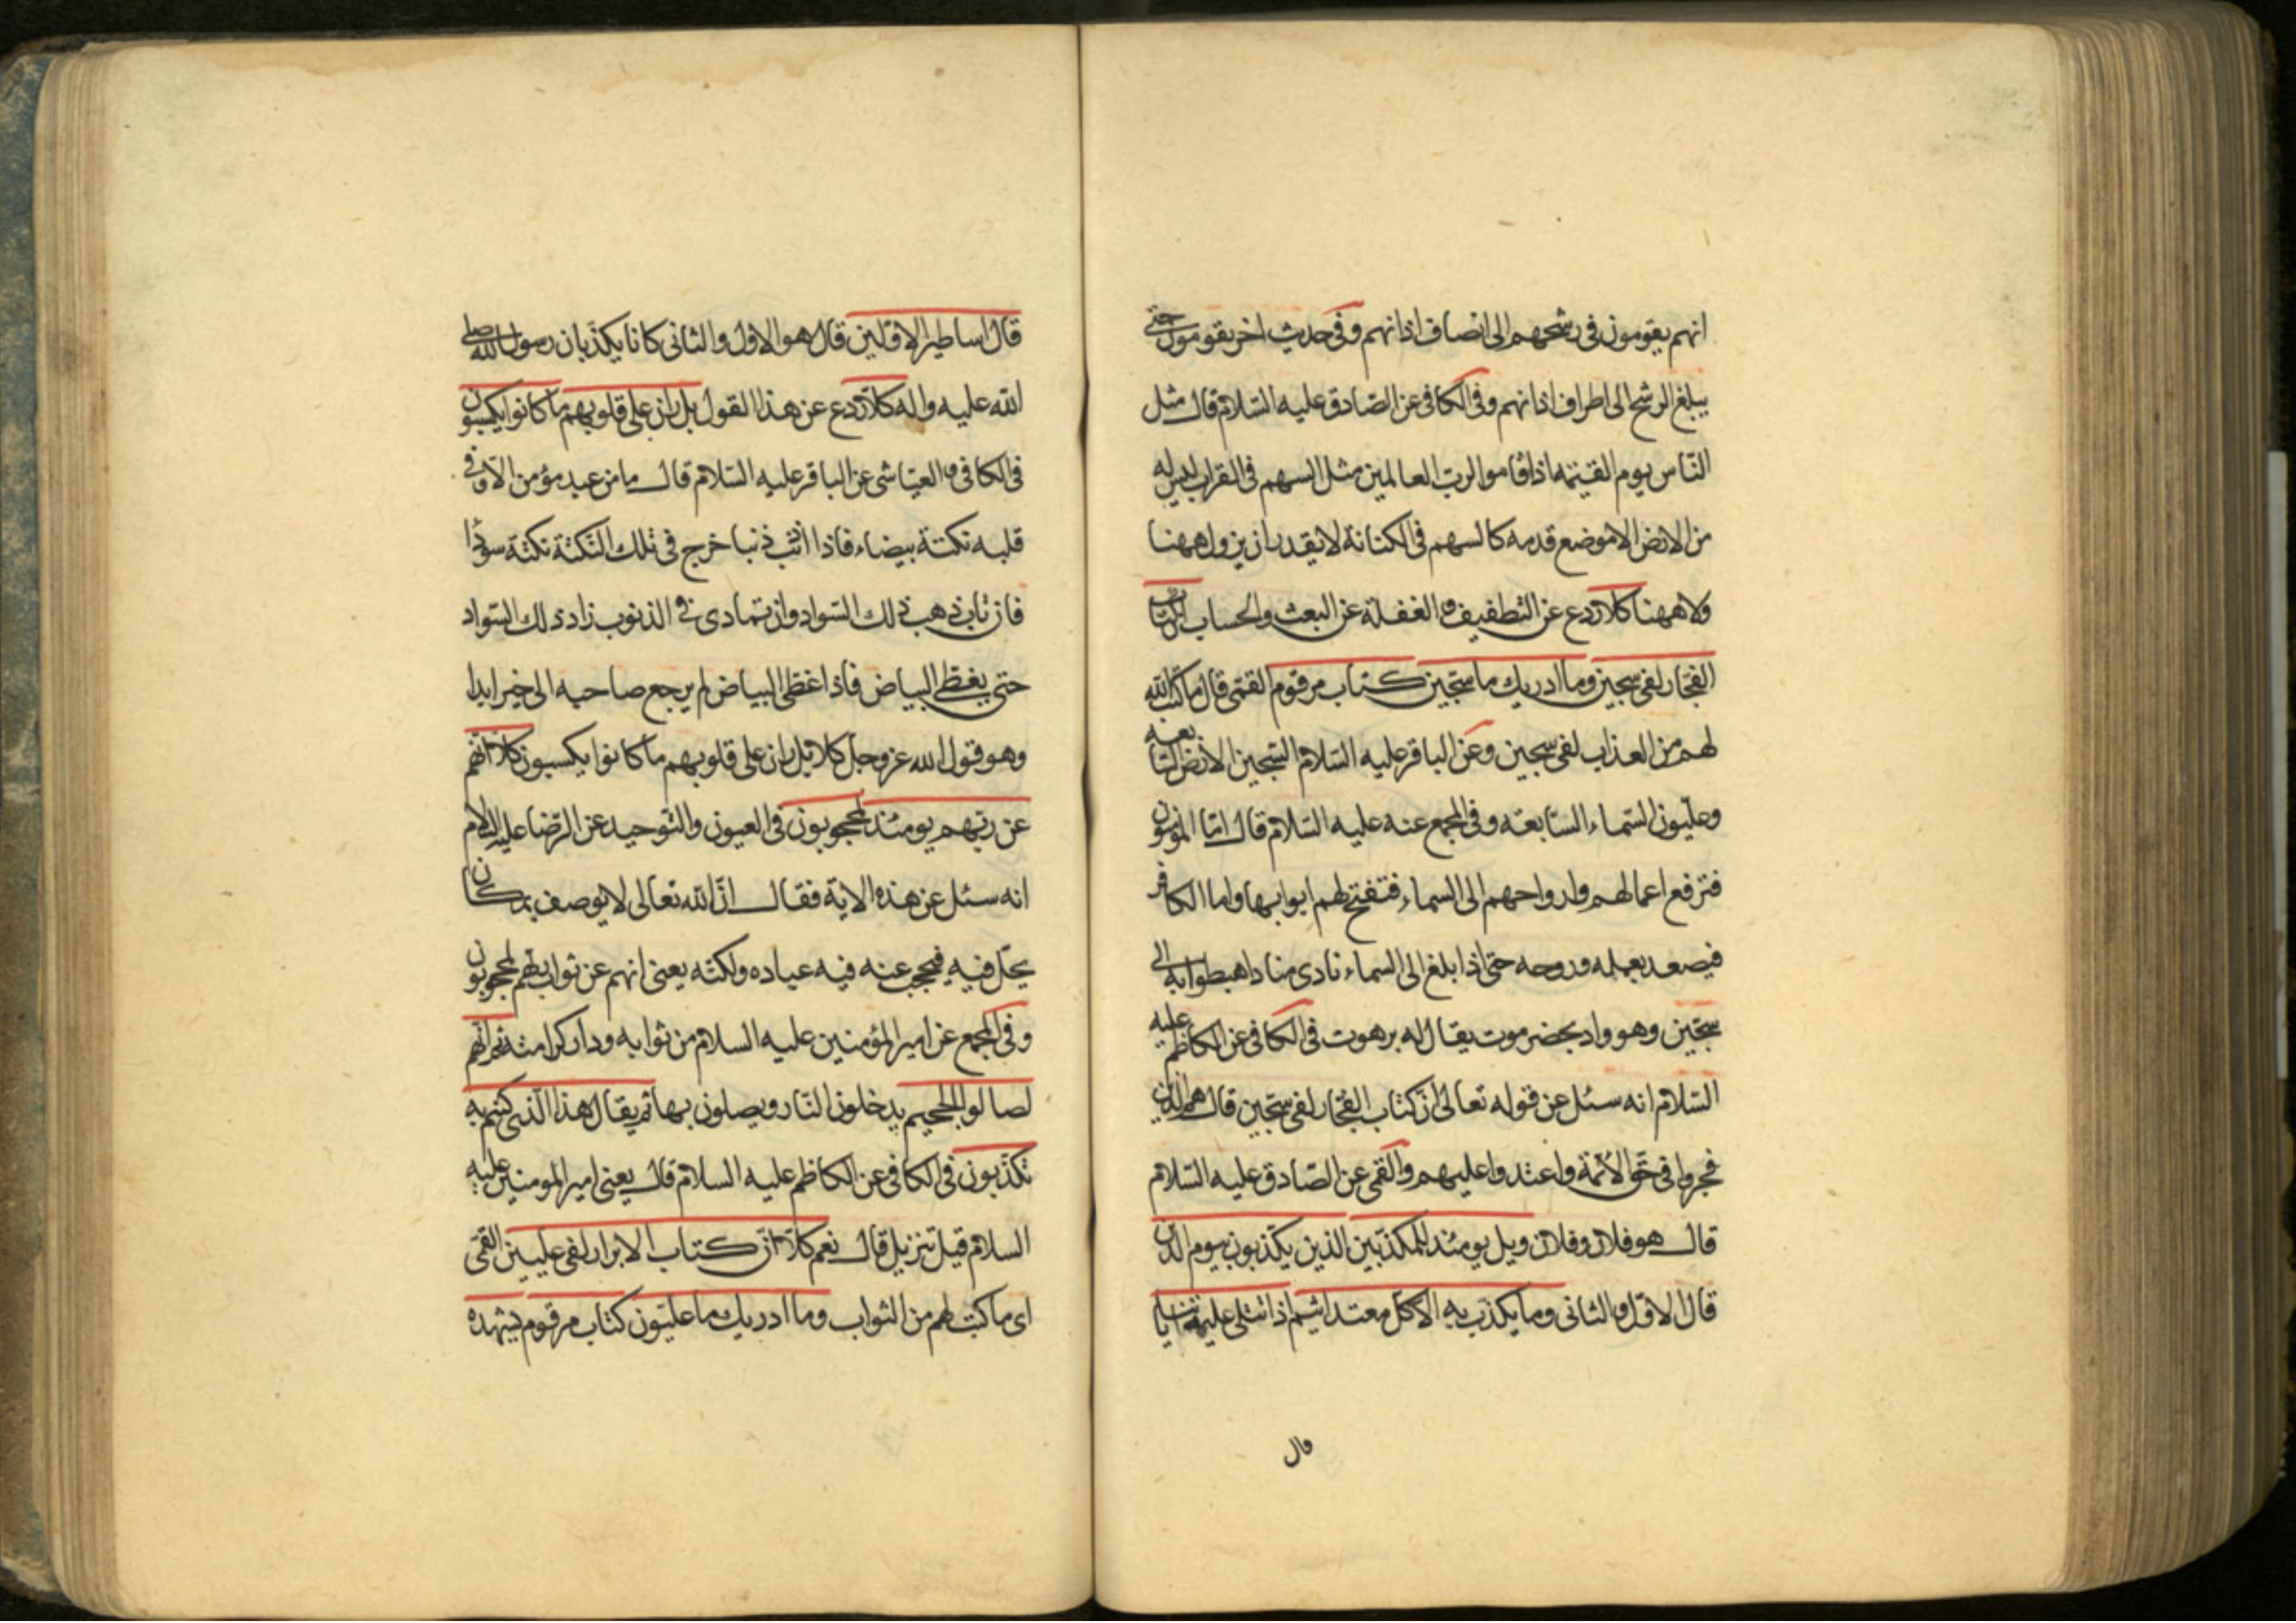 انهم يقومون فى رشحهم الى انصاف اذانهم وفى حديث اخر يقومون حتى
يبلغ الرشح الى اطراف اذانهم وفى الكافى عن الصّادق عليه السّلام قال مثل
النّاس يوم القيٰمة اذا قاموا لرب العالمين مثل السهم فى القراب ليس له
من الارض الا موضع قدمه كالسهم فى الكنانة لا يقدر ان يزول ههنا
ولا ههنا كلا ردع عن التطفيف و الغفلة عن البعث والحساب ان كتاب
الفجّار لفى سجين وما ادريك ما سجّين كتاب مرقوم القمّى قال ما كتب الله
لهم من العذاب لفى سجين وعن الباقر عليه السّلام السّجين الارض السّابعة
وعلّيون السّماء السّابعة وفى المجمع عنه عليه السّلام قال امّا المؤمنون
فترفع اعمالهم وارواحهم الى السماء فتفتح لهم ابوابها واما الكافر
فيصعد بعمله وروحه حتى اذا بلغ الى السماء نادى مناد اهبطوا به الى
سجّين وهو واد بحضرموت يقال له برهوت فى الكافى عن الكاظم عليه
السّلام انه سئل عن قوله تعالى انّ كتاب الفجّار لفى سجّين قال هم الذين
فجروا فى حقّ الائمّة واعتدوا عليهم والقمى عن الصّادق عليه السّلام
قال هو فلان وفلان ويل يومئذ للمكذّبين الذين يكذّبون بيوم الدّين
قال الاوّل والثانى وما يكذّب به الّا كلّ معتد اثيم اذا تتلى عليه اياتنا
قال
قال اساطير الاوّلين قال هو الاول والثانى كانا يكذّبان رسول الله صلى
الله عليه واله كلّا ردع عن هذا القول بل ران على قلوبهم ما كانوا يكسبون
فى الكافى و العيّاشى عن الباقر عليه السّلام قال ما من عبد مؤمن الّا وفى
قلبه نكتة بيضاء فاذا اذنب ذنبا خرج فى تلك النّكتة نكتة سوداء
فان تاب ذهب ذلك السّواد وان تمادى فى الذنوب زاد ذلك السّواد
حتى يغطى البياض فاذا غطى البياض لم يرجع صاحبه الى خير ابدا
وهو قول الله عز وجل كلا بل ران على قلوبهم ما كانوا يكسبون كلّا انّهم
عن ربّهم يومئذ لمحجوبون فى العيون والتّوحيد عن الرّضا عليه السلام
انه سئل عن هذه الاية فقال انّ الله تعالى لا يوصف بمكان
يحلّ فيه فيحجب عنه فيه عباده ولكنّه يعنى انهم عن ثواب ربّهم لمحجوبون
وفى المجمع عن امير المؤمنين عليه السلام من ثوابه ودار كرامته ثم انّهم
لصالوا الجحيم يدخلون النّار ويصلون بها ثم يقال هذا الّذى كنتم به
تكذّبون فى الكافى عن الكاظم عليه السلام قال يعنى امير المومنين عليه
السلام قيل تنزيل قال نعم كلّا انّ كتاب الابرار لفى عليين القمّى
اى ما كتب لهم من الثواب وما ادريك ما علّيون كتاب مرقوم يشهده